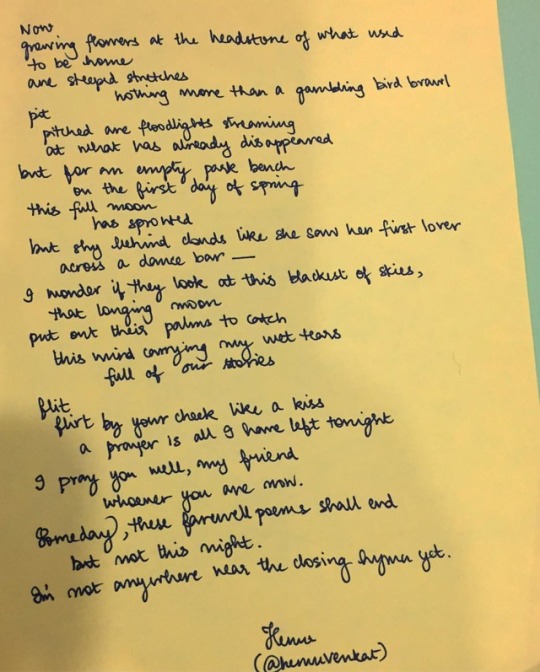 Now
growing flowers at the headstone of what used
to be home
are steepid stretches
nothing more than a gambling bird brawl
pit
pitched are floodlights streaming
at what has already disappeared
but for an empty park bench
on the first day of spring
this full moon
has sprouted
but shy behind clouds like she saw her first lover
across a dance bar —
I wonder if they look at this blackest of skies,
that longing moon
put out their palms to catch
this wind carrying my wet tears
full of our stories
flit
flirt by your cheek like a kiss
a prayer is all I have left tonight
I pray you well, my friend
whoever you are now.
Someday, these farewell poems shall end
but not this night.
I'm not anywhere near the closing hymn yet.
Hemu
(@hemuvenkat)